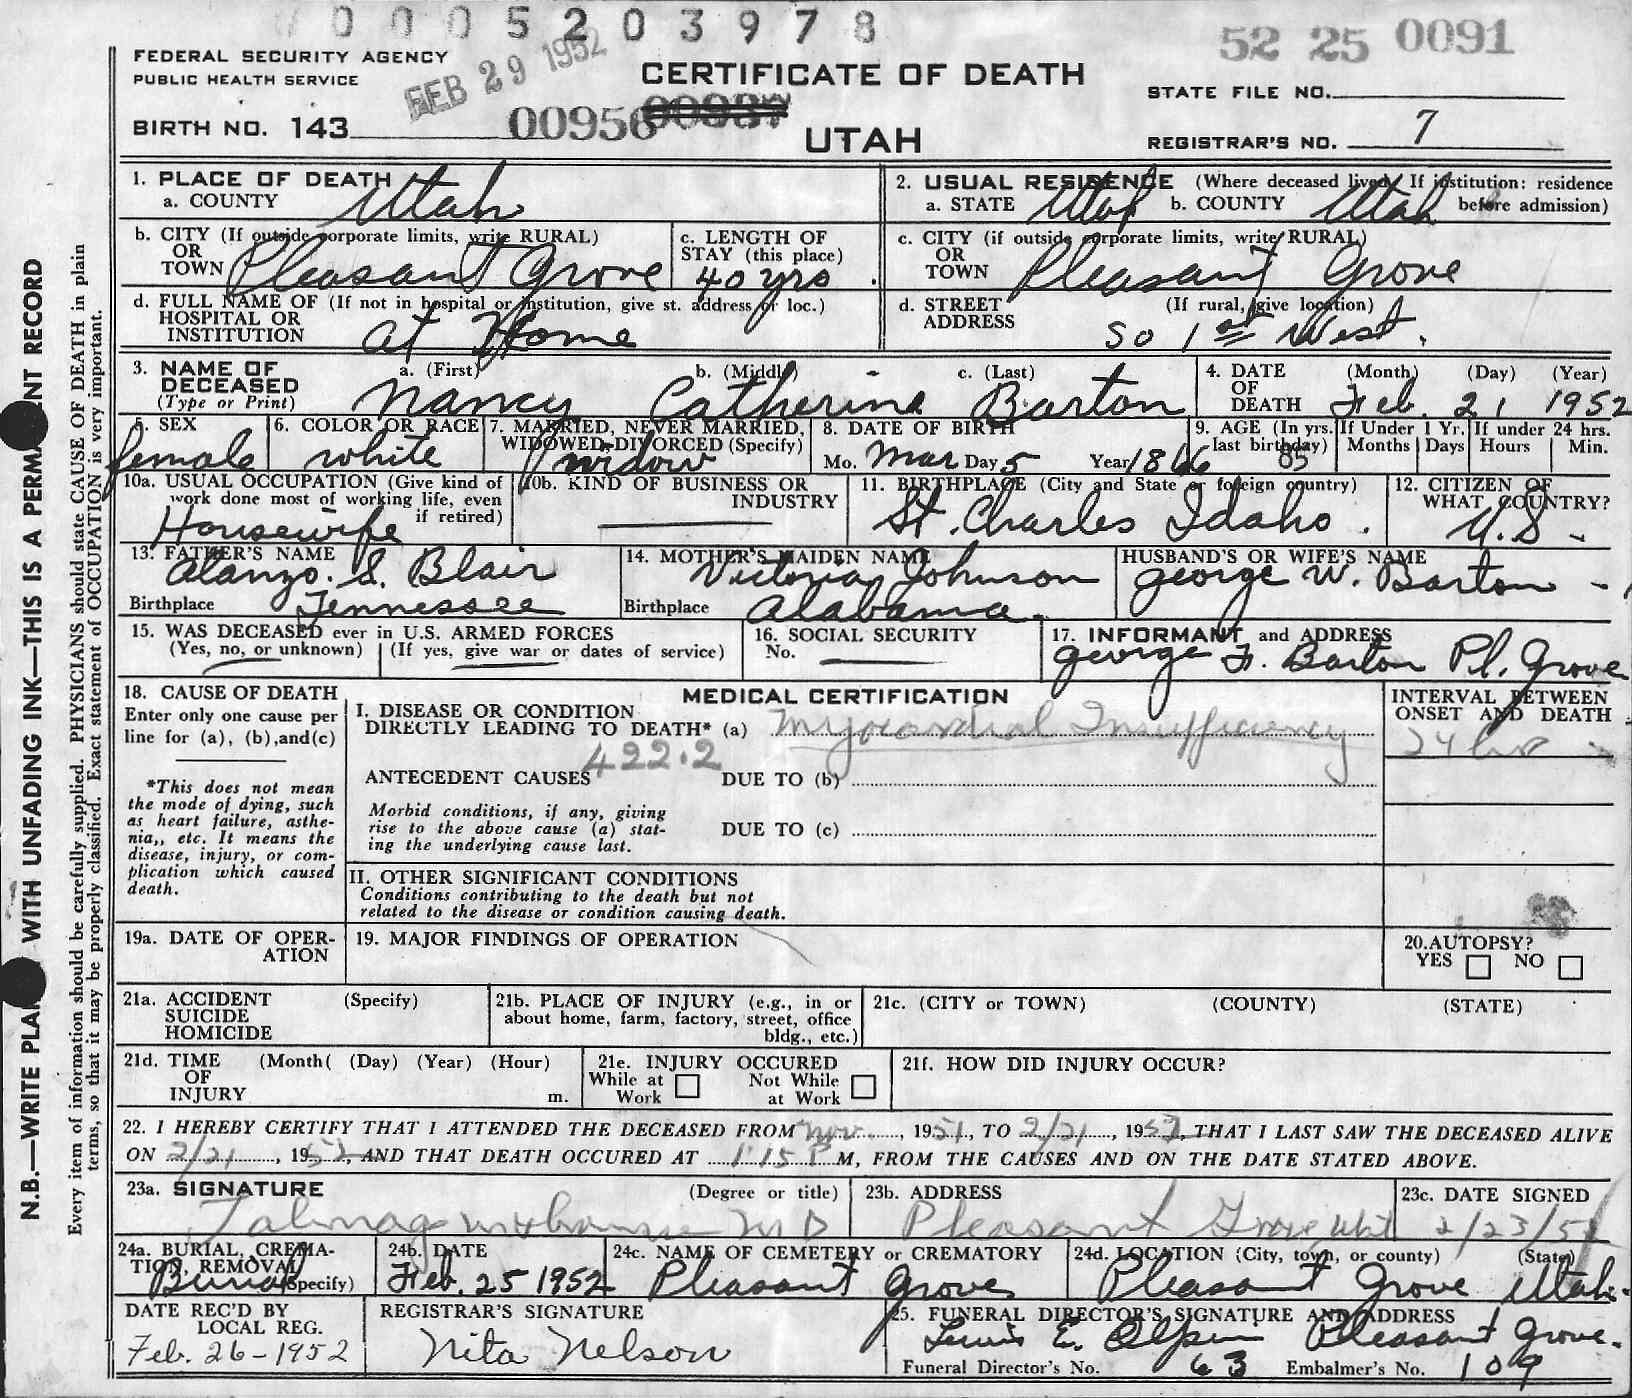 0 0 0 5 2 0 3 9 7 8
52 25 0091
FEDERAL SECURITY AGENCY
PUBLIC HEALTH SERVICE
FEB 29 1952
CERTIFICATE OF DEATH
STATE FILE NO.
BIRTH NO. 143
00956 00937
UTAH
REGISTRAR'S NO. 7
1. PLACE OF DEATH
a. COUNTY Utah
2. USUAL RESIDENCE (Where deceased lived. If institution: residence before admission)
a. STATE Utah b. COUNTY Utah
b. CITY (If outside corporate limits, write RURAL)
OR
TOWN Pleasant Grove
c. LENGTH OF
STAY (this place)
40 yrs
c. CITY (if outside corporate limits, write RURAL)
OR
TOWN Pleasant Grove
d. FULL NAME OF (If not in hospital or institution, give st. address or loc.)
HOSPITAL OR
INSTITUTION at Home
d. STREET (If rural, give location)
ADDRESS So 1st West.
3. NAME OF
DECEASED
(Type or Print)
a. (First) b. (Middle) c. (Last)
Nancy Catherine Barton
4. DATE
OF
DEATH
(Month) (Day) (Year)
Feb. 21 1952
5. SEX
female
6. COLOR OR RACE
white
7. MARRIED, NEVER MARRIED,
WIDOWED, DIVORCED (Specify)
widow
8. DATE OF BIRTH
Mo. Mar Day 5 Year 1866
9. AGE (In yrs.
last birthday)
85
If Under 1 Yr.
Months Days
If under 24 hrs.
Hours Min.
10a. USUAL OCCUPATION (Give kind of
work done most of working life, even
if retired)
Housewife
10b. KIND OF BUSINESS OR
INDUSTRY
11. BIRTHPLACE (City and State or foreign country)
St. Charles Idaho.
12. CITIZEN OF
WHAT COUNTRY?
U.S.
13. FATHER'S NAME
Alanzo. S. Blair
Birthplace Tennessee
14. MOTHER'S MAIDEN NAME
Victoria Johnson
Birthplace Alabama.
HUSBAND'S OR WIFE'S NAME
George W. Barton
15. WAS DECEASED ever in U.S. ARMED FORCES
(Yes, no, or unknown) (If yes, give war or dates of service)
16. SOCIAL SECURITY
No.
17. INFORMANT and ADDRESS
George F. Barton Pl. Grove
18. CAUSE OF DEATH
Enter only one cause per
line for (a), (b), and (c)
*This does not mean
the mode of dying, such
as heart failure, asthe-
nia,, etc. It means the
disease, injury, or com-
plication which caused
death.
MEDICAL CERTIFICATION
I. DISEASE OR CONDITION
DIRECTLY LEADING TO DEATH* (a) Myocardial Insufficiency
422.2
ANTECEDENT CAUSES DUE TO (b)
Morbid conditions, if any, giving
rise to the above cause (a) stat-
ing the underlying cause last.
DUE TO (c)
II. OTHER SIGNIFICANT CONDITIONS
Conditions contributing to the death but not
related to the disease or condition causing death.
INTERVAL BETWEEN
ONSET AND DEATH
24 hrs
19a. DATE OF OPER-
ATION
19. MAJOR FINDINGS OF OPERATION
20. AUTOPSY?
YES NO
21a. ACCIDENT (Specify)
SUICIDE
HOMICIDE
21b. PLACE OF INJURY (e.g., in or
about home, farm, factory, street, office
bldg., etc.)
21c. (CITY or TOWN) (COUNTY) (STATE)
21d. TIME (Month( (Day) (Year) (Hour)
OF
INJURY m.
21e. INJURY OCCURED
While at Work Not While at Work
21f. HOW DID INJURY OCCUR?
22. I HEREBY CERTIFY THAT I ATTENDED THE DECEASED FROM Nov., 1951, TO 2/21, 1952, THAT I LAST SAW THE DECEASED ALIVE
ON 2/21, 1952, AND THAT DEATH OCCURED AT 1:15 P M, FROM THE CAUSES AND ON THE DATE STATED ABOVE.
23a. SIGNATURE (Degree or title)
M D
23b. ADDRESS
Pleasant Grove Utah
23c. DATE SIGNED
2/23/52
24a. BURIAL, CREMA-
TION, REMOVAL
(Specify)
Burial
24b. DATE
Feb. 25 1952
24c. NAME OF CEMETERY or CREMATORY
Pleasant Grove
24d. LOCATION (City, town, or county) (State)
Pleasant Grove Utah.
DATE REC'D BY
LOCAL REG.
Feb. 26-1952
REGISTRAR'S SIGNATURE
Nita Nelson
25. FUNERAL DIRECTOR'S SIGNATURE AND ADDRESS
Lewis E. Pleasant Grove.
Funeral Director's No. 63 Embalmer's No. 109
N.B.—WRITE WITH UNFADING INK—THIS IS A RECORD
Every item of information should be carefully supplied. PHYSICIANS should state CAUSE OF DEATH in plain
terms, so that it may be properly classified. Exact statement of OCCUPATION is very important.